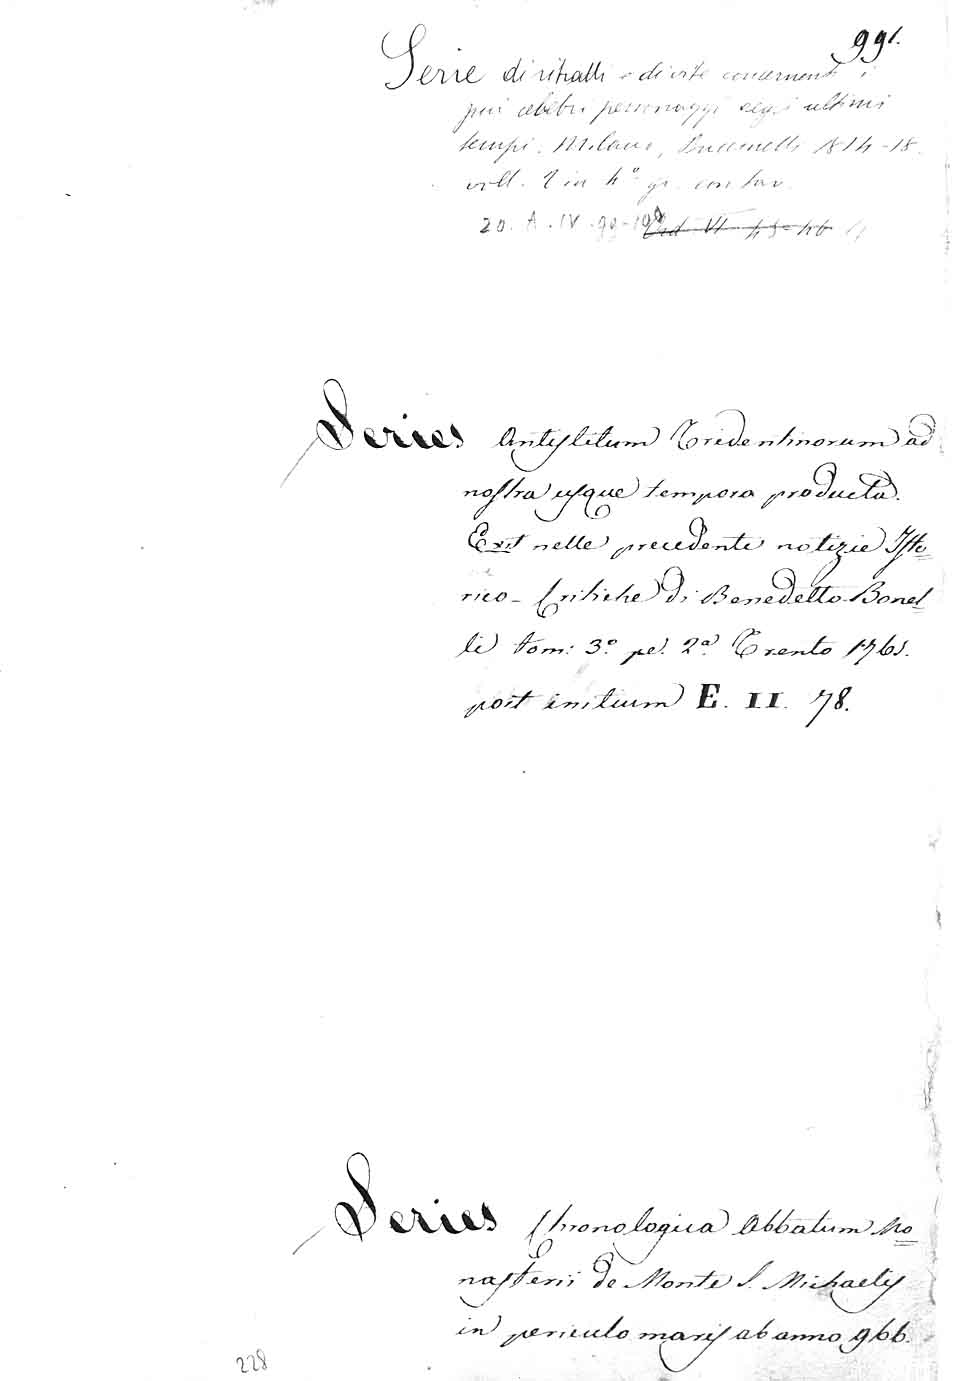 991.
Serie di ritratti e di vite concernenti i
più celebri personaggi degli ultimi
tempi. Milano, Buccinelli 1814-18.
voll. 2 in 4° gr. con tav.
20. A. IV. 99-100
Series Antistitum Tridentinorum ad
nostra usque tempora producta.
Exit nelle precedenti notizie Isto=
rico-Critiche di Benedetto Bonel=
li tom: 3.° pe. 2.a Trento 1765.
post initium E. II. 78.
Series Chronologica Abbatum Mo=
nasterii de Monte S. Michaelis
in periculo maris ab anno 966.
228